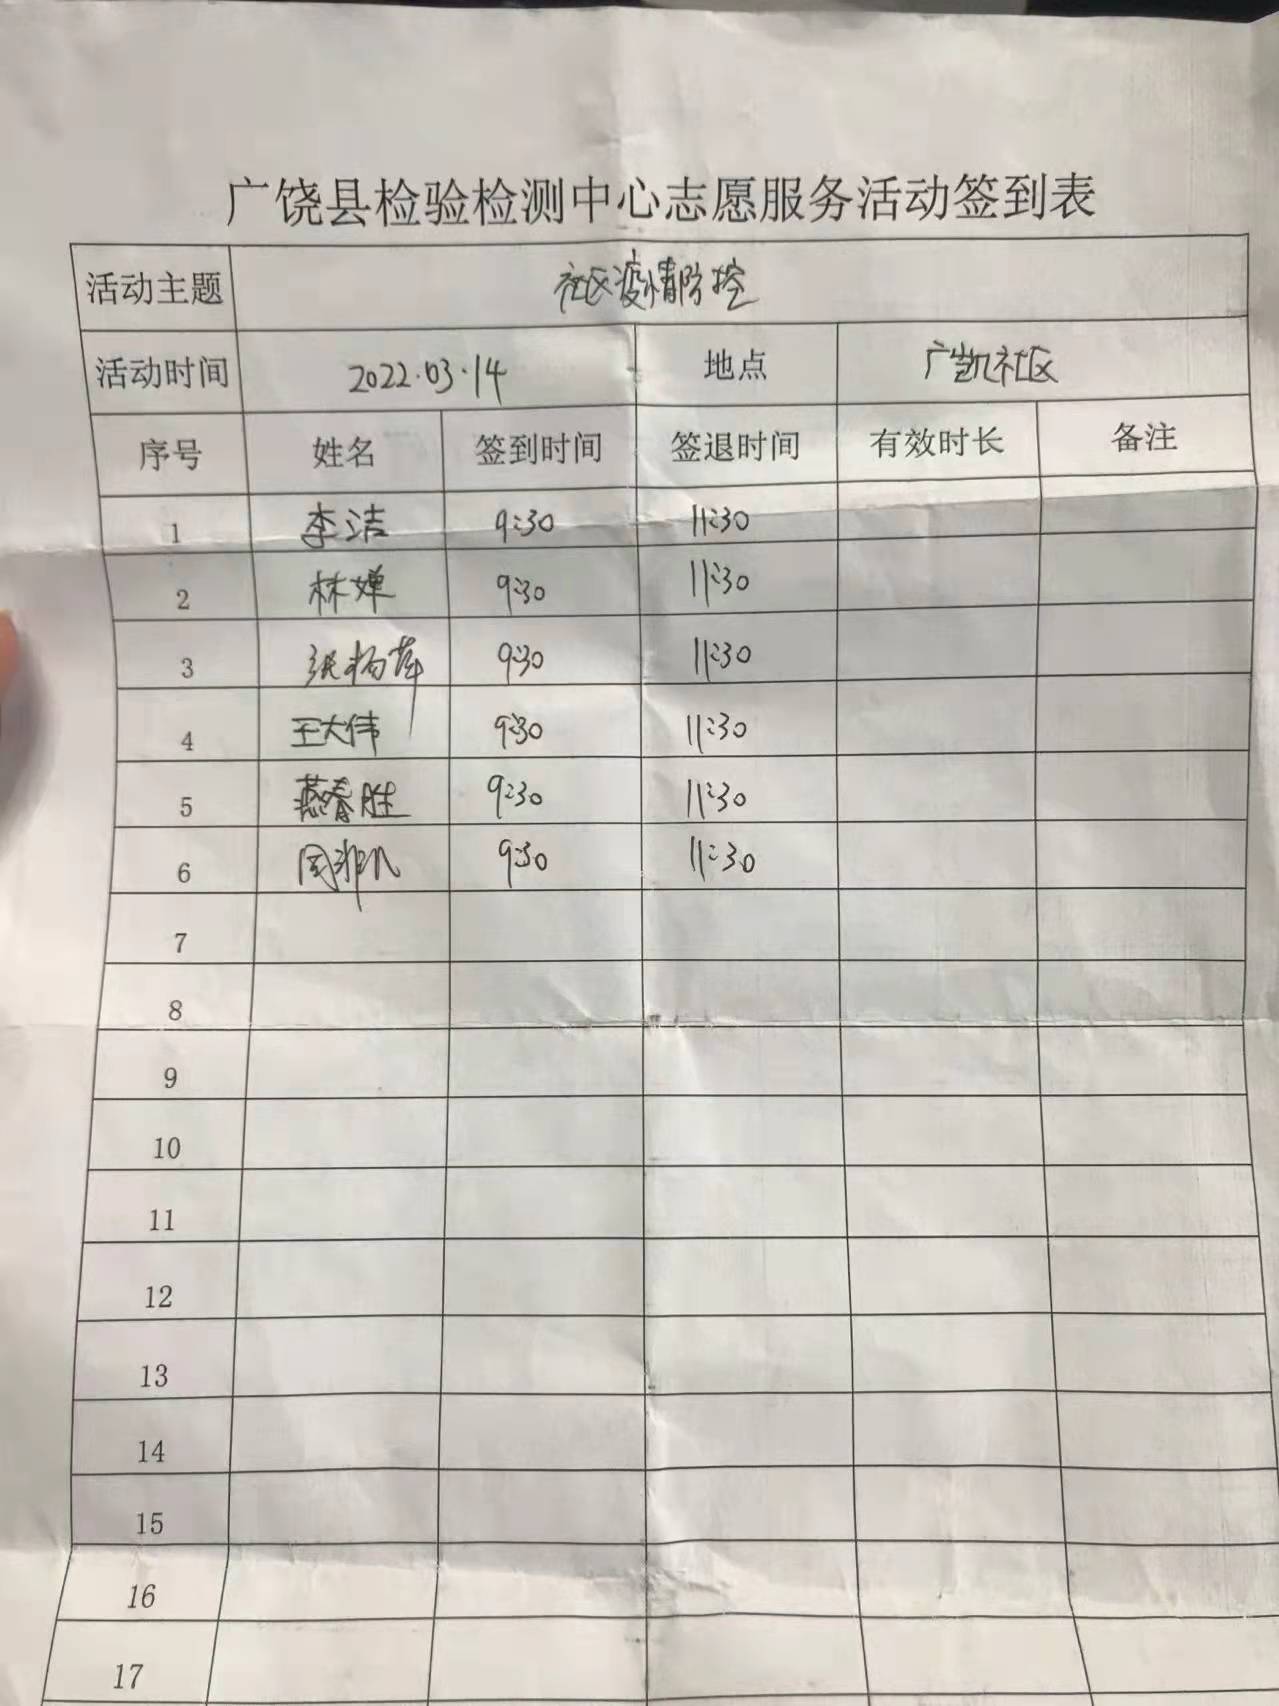 广饶县检验检测中心志愿服务活动签到表
活动主题 社区疫情防控
活动时间 2022.03.14 地点 广凯社区
序号 姓名 签到时间 签退时间 有效时长 备注
1 李洁 9:30 11:30
2 林婵 9:30 11:30
3 张杨萍 9:30 11:30
4 王大伟 9:30 11:30
5 燕春胜 9:30 11:30
6 9:30 11:30
7
8
9
10
11
12
13
14
15
16
17